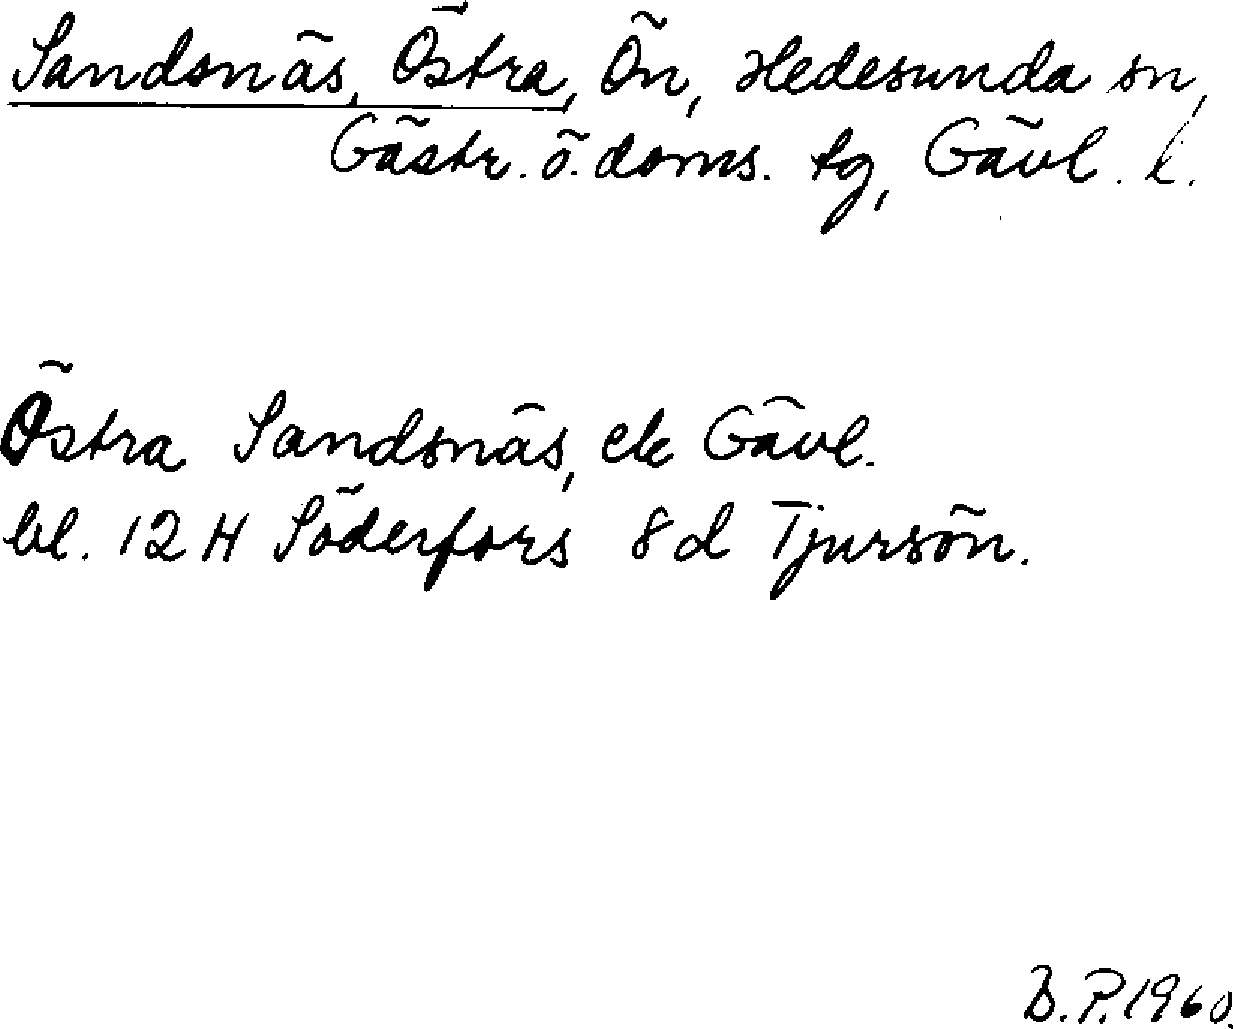 Sandsnäs, Östra, Ön, Hedesunda sn,
Gästr. ö. doms. tg, Gävl. l.
Östra Sandsnäs, ek Gävl.
bl. 12 H Söderfors 8d Tjursön.
B. P. 1960.